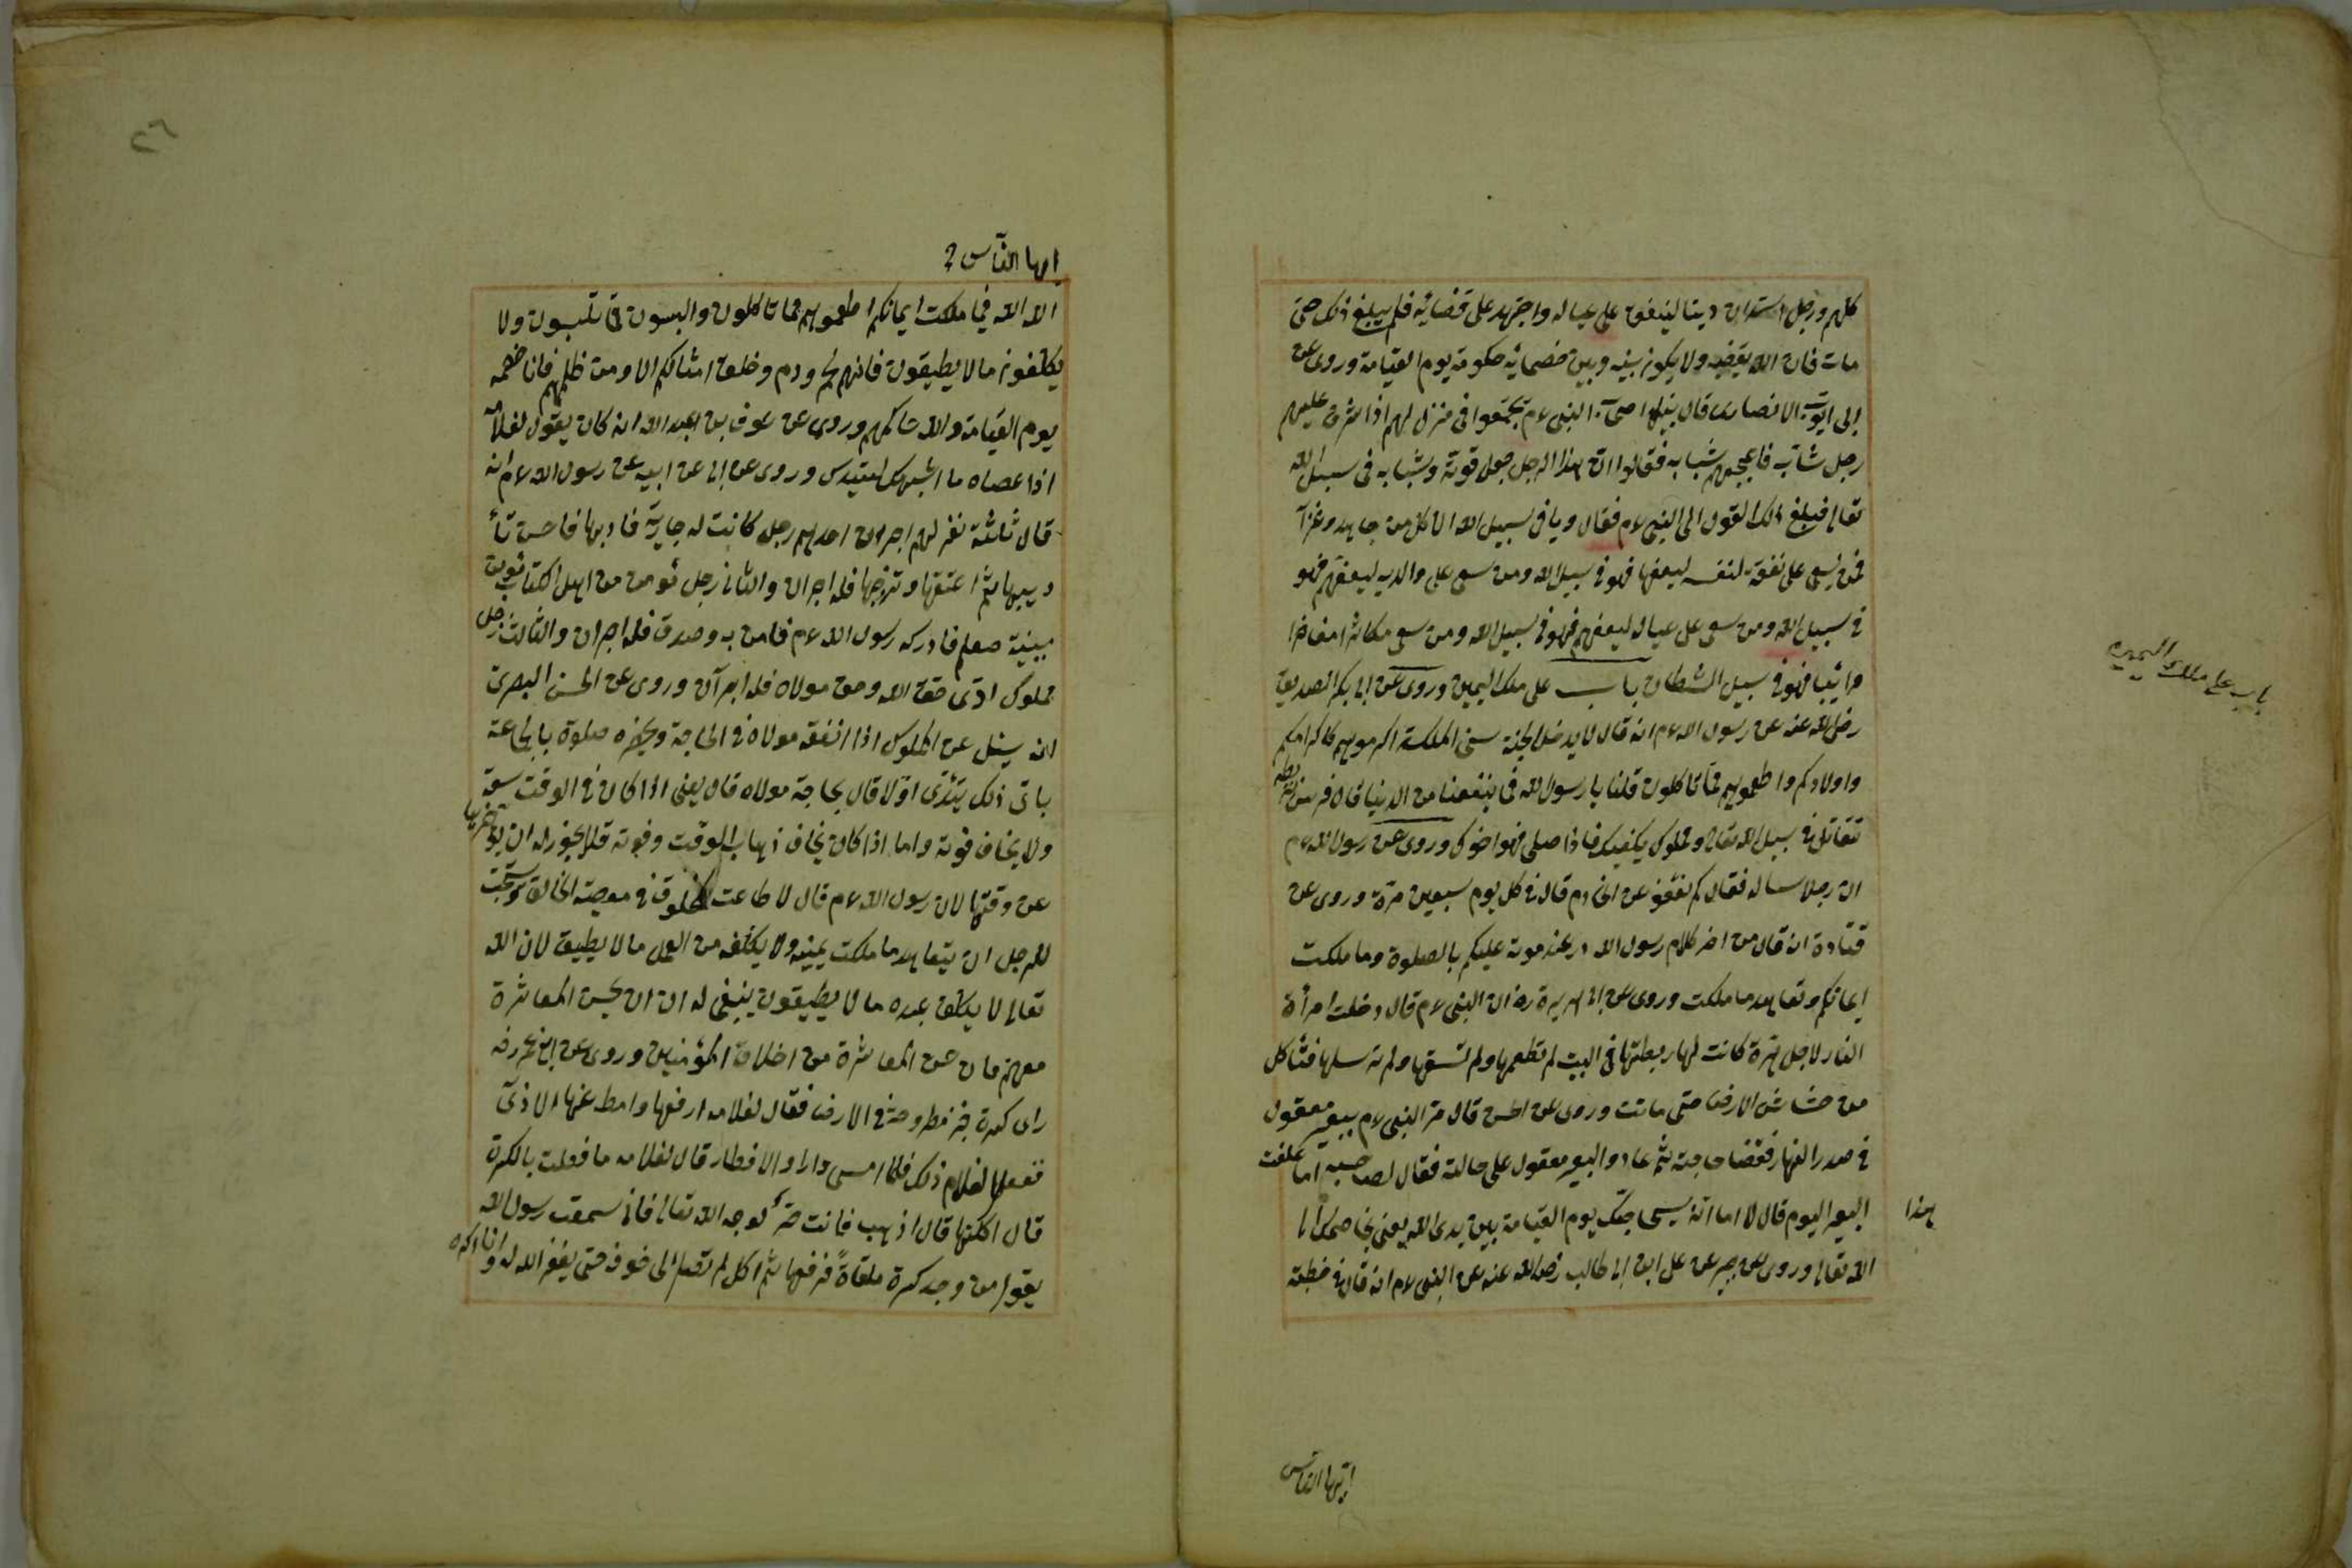 كلهم ورجل استدان دينا لينفق على عياله واجتهد على قضائه فلم يبلغ ذلك حتى
مات فان الله يقضيه ولا يكون بينه وبين خصمائه حكومة يوم القيامة وروى عن
ابى ايوب الانصارى قال بينما اصحاب النبى عم يجتمعوا فى منزل لهم اذا اشرف عليهم
رجل شاب فاعجبهم شبابه فقالوا ان هذا الرجل جعل قوته وشبابه فى سبيل الله
تعالى فبلغ ذلك القول الى النبى عم فقال وما فى سبيل الله الا كل من جاهد وغزا
فمن يسعى على نفقة لنفسه ليعفها فهو فى سبيل الله ومن سعى على والديه ليعفهم فهو
فى سبيل الله ومن سعى على عياله ليعفهم فهو فى سبيل الله ومن سعى مكاثرا مفاخرا
مرائيا فهو فى سبيل الشيطان باب على ملك اليمين وروى عن ابى بكر الصديق
رضى الله عنه عن رسول الله عم انه قال لا يدخل الجنة سئ الملكة اكرموهم كاكرامكم
واولادكم واطعموهم مما تأكلون قلنا يا رسول الله فما ينفعنا من الدنيا قال فرس تربطه
تقاتل فى سبيل الله تعالى ومملوك يكفيك فاذا صلى فهو اخوك وروى عن رسول الله عم
ان رجلا ساله فقال كم نعفو عن الخادم قال فى كل يوم سبعين مرة وروى عن
قتادة انه قال من اخر كلام رسول الله در عند موته عليكم بالصلوة وما ملكت
ايمانكم وتعاهد ما ملكت وروى عن ابى هريرة رض ان النبى عم قال دخلت امرأة
النار لاجل هرة كانت لها ربطتها فى البيت لم تطعمها ولم تسقها ولم ترسلها فتأكل
من خشاش الارض حتى ماتت وروى عن الحسن قال مر النبى عم ببعير معقول
فى صدر النهار فقضا حاجته ثم عاد والبعير معقول على حالته فقال لصاحبه اما علفت
هذا البعير اليوم قال لا اما انه سيحاجك يوم القيامة بين يدى الله يعنى يخاصمك الى
الله تعالى وروى عن عن على ابن ابى طالب رضى الله عنه عن النبى عم انه قال فى خطبته
باب على ملك اليمين
ايها الناس
٢٦
ايها الناس
الله الله فيما ملكت ايمانكم اطعموهم مما تأكلون والبسون مما تلبسون ولا
يكلفون ما لا يطيقون فانهم لحم ودم وخلق امثالكم الا ومن ظلمهم فانا خصمه
يوم القيامة والله حاكمهم وروى عن عوف بن عبد الله انه كان يقول لغلامه
اذا عصاه ما اشبهك لسيدك وروى عن ابى عن ابيه عن رسول الله عم انه
قال ثلثة نفر لهم اجران احدهم رجل كانت له جارية فادبها فاحسن تأ
ديبها ثم اعتقها وتزوجها فله اجران والثانى رجل مؤمن من اهل الكتاب يؤمن
بنبيه صعلم فادركه رسول الله عم فامن به وصدق فله اجران والثالث رجل
مملوك ادى حق الله وحق مولاه فله اجران وروى عن الحسن البصرى
انه سئل عن المملوك اذا انفقه مولاه فى الحاجة ويحضره صلوة بالجماعة
باى ذلك يبتدى اولا قال بحاجة مولاه قال يعنى اذا كان فى الوقت سعة
ولا يخاف فوته واما اذا كان يخاف ذهاب الوقت وفوته فلا يجوز له ان يؤخرها
عن وقتها لان رسول الله عم قال لا طاعت لمخلوق فى معصية الخالق ويستحب
للرجل ان يتعاهد ما ملكت يمينه ولا يكلفه من العمل ما لا يطيق لان الله
تعالى لا يكلف عبده ما لا يطيقون ينبغى له ان ان يحسن المعاشرة
معهم فان حسن المعاشرة من اخلاق المؤمنين وروى عن ابن عمر رضه
راى كسرة خبز مطروحة فى الارض فقال لغلامه ارفعها وامط عنها الاذى
ففعل الغلام ذلك فلما امسى واراد الافطار قال لغلامه ما فعلت بالكسرة
قال اكلتها قال اذهب فانت حر لوجه الله تعالى فانى سمعت رسول الله
يقول من وجد كسرة ملقاة فرفعها ثم اكل لم تصل الى جوفه حتى يغفر الله له وانا اكره